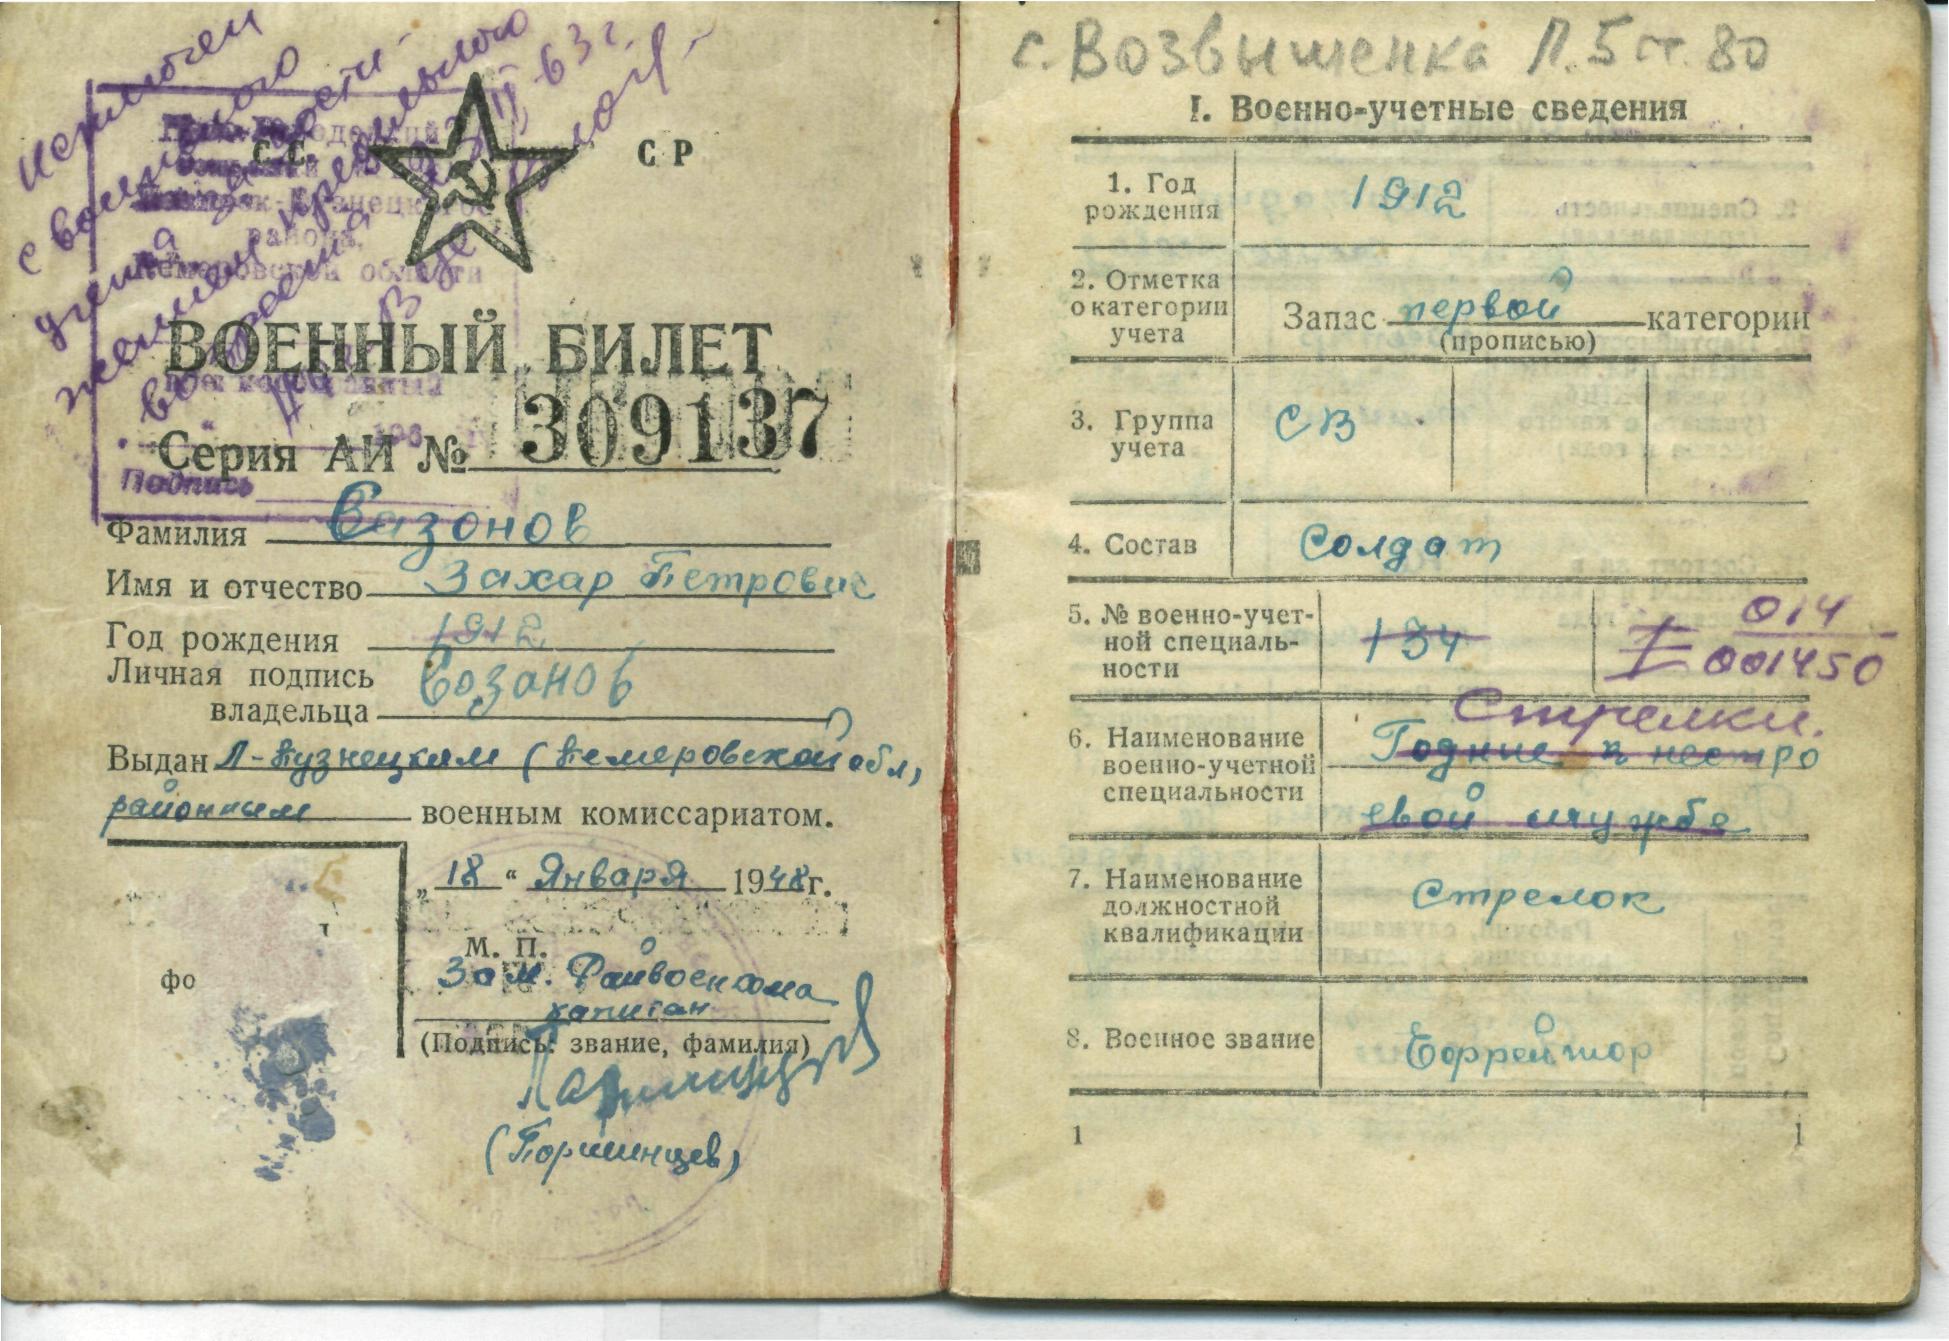 Исключен
с воинского
учета за достижением предельного
возраста
СС СР
района,
Кемеровской области
ВОЕННЫЙ БИЛЕТ
Серия АИ № 309137
Подпись
Фамилия Сазонов
Имя и отчество Захар Петрович
Год рождения 1912
Личная подпись
владельца Созанов
Выдан Л-Кузнецким (Кемеровской обл,
районным военным комиссариатом.
„18“ Января 1948г.
М. П.
Зам. Райвоенкома
капитан
(Подпись: звание, фамилия)
(Поршинцев)
фо
с. Возвышенка Л.5 ст. 80
I. Военно-учетные сведения
1. Год
рождения
1912
2. Отметка
о категории
учета
Запас первой категории
(прописью)
3. Группа
учета
СВ
4. Состав
Солдат
5. № военно-учет-
ной специаль-
ности
134
014
I 001450
6. Наименование
военно-учетной
специальности
Стрелки.
Годные к нестро
евой службе
7. Наименование
должностной
квалификации
Стрелок
8. Военное звание
Ефрейтор
1
1